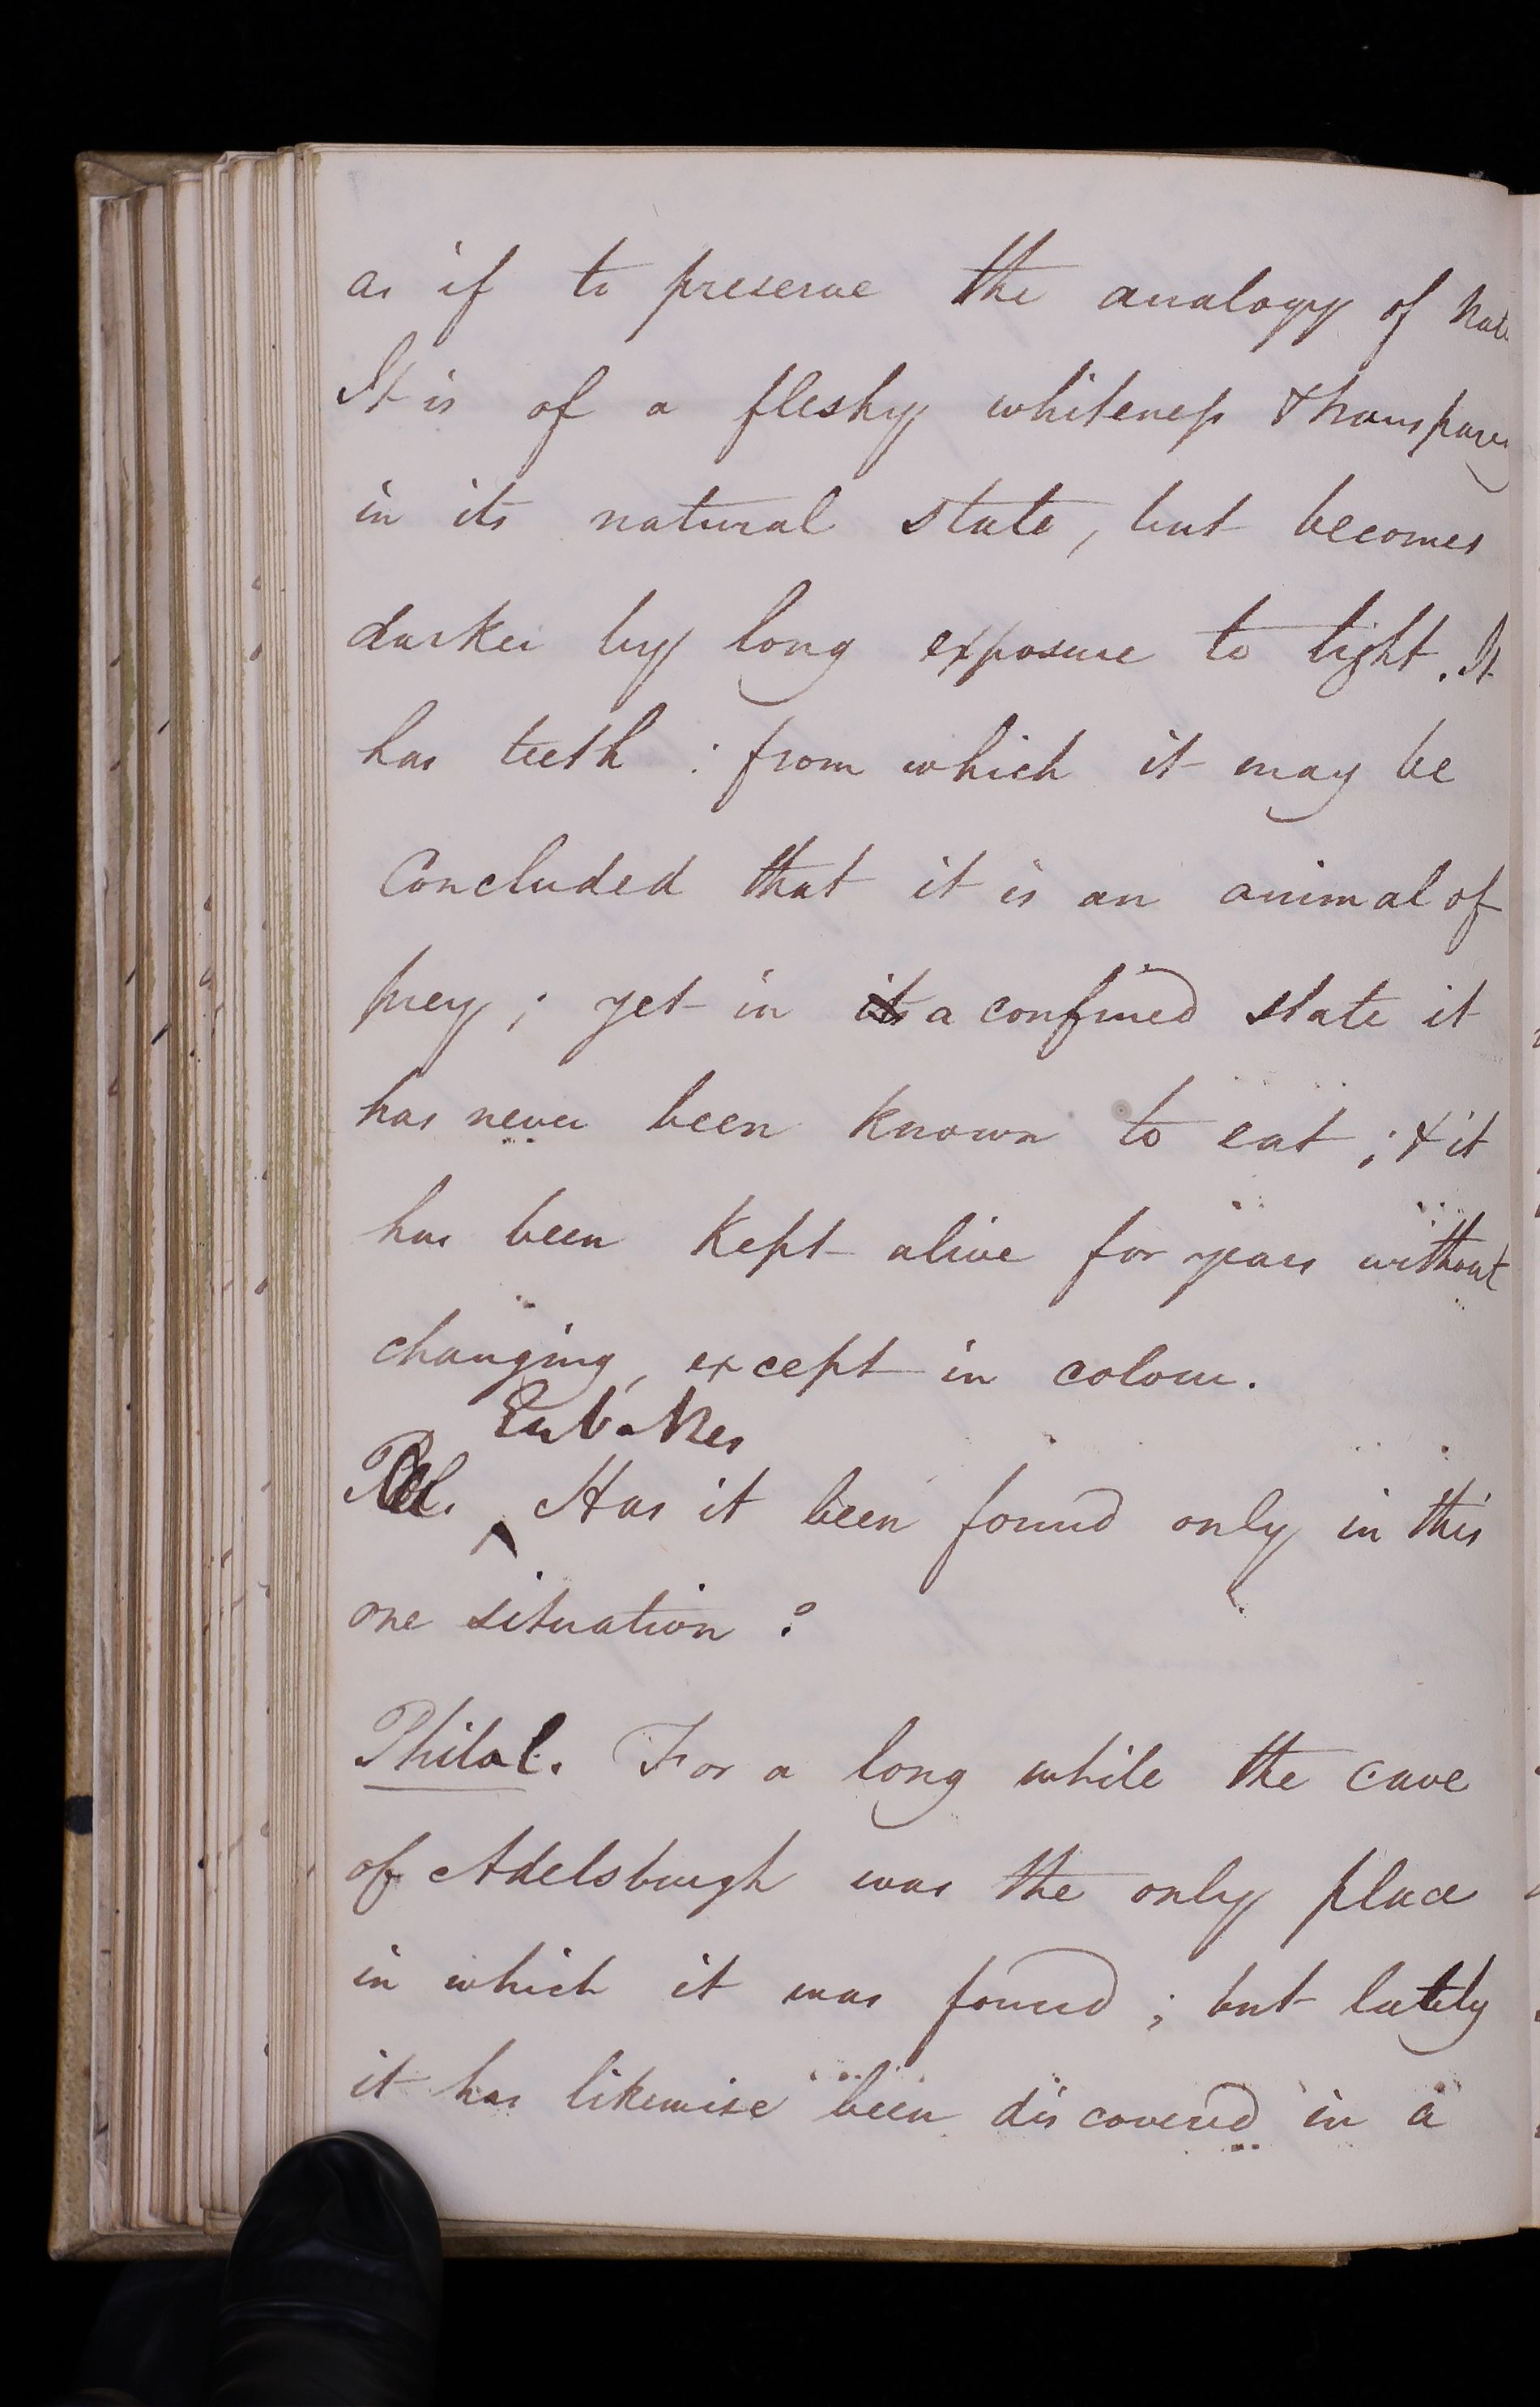 as if to preserve the analogy of Nat
It is of a fleshy whiteness & transparen
in its natural state, but becomes
darker by long exposure to light. It
has teeth : from which it may be
Concluded that it is an animal of
prey ; yet in its a confined state it
has never been known to eat ; & it
has been kept alive for years without
changing, except in colour.
Eubates
Has it been found only in this
one situation ?
Philal. For a long while the cave
of Adelsburgh was the only place
in which it was found ; but lately
it has likewise been discovered in a